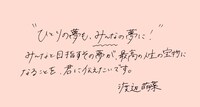 "ひとりの夢も、みんなの夢に!"
みんなと目指すその夢が、最高の人生の宝物に
なることを、君に伝えたいです。
渡辺萌菜